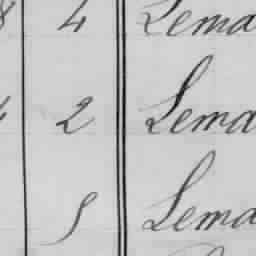 8 4 Lema
4 2 Lema
5 Lema